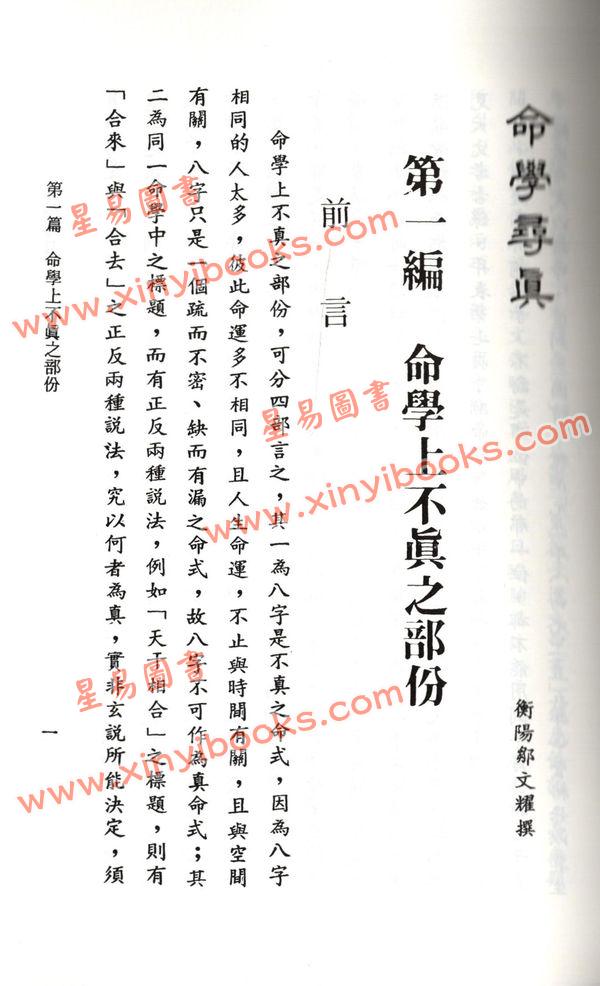 命學尋眞
衡陽鄒文耀撰
第一編　命學上不眞之部份
前言
命學上不真之部份，可分四部言之，其一為八字是不真之命式，因為八字
相同的人太多，彼此命運多不相同，且人生命運，不止與時間有關，且與空間
有關，八字只是一個疏而不密、缺而有漏之命式，故八字不可作為真命式；其
二為同一命學中之標題，而有正反兩種說法，例如「天干相合」之標題，則有
「合來」與「合去」之正反兩種說法，究以何者為真，實非玄說所能決定，須
第一篇　命學上不眞之部份
一
星易圖書
www.xinyibooks.com
星易圖書
www.xinyibooks.com
星易圖書
www.xinyibooks.com